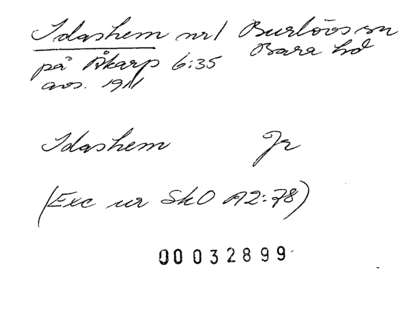 Idashem nr 1 Burlövs sn
på Åkarp 6:35 Bara hd
avs. 1911
Idashem Jr
(Exc ur SkO A2:78)
00032899